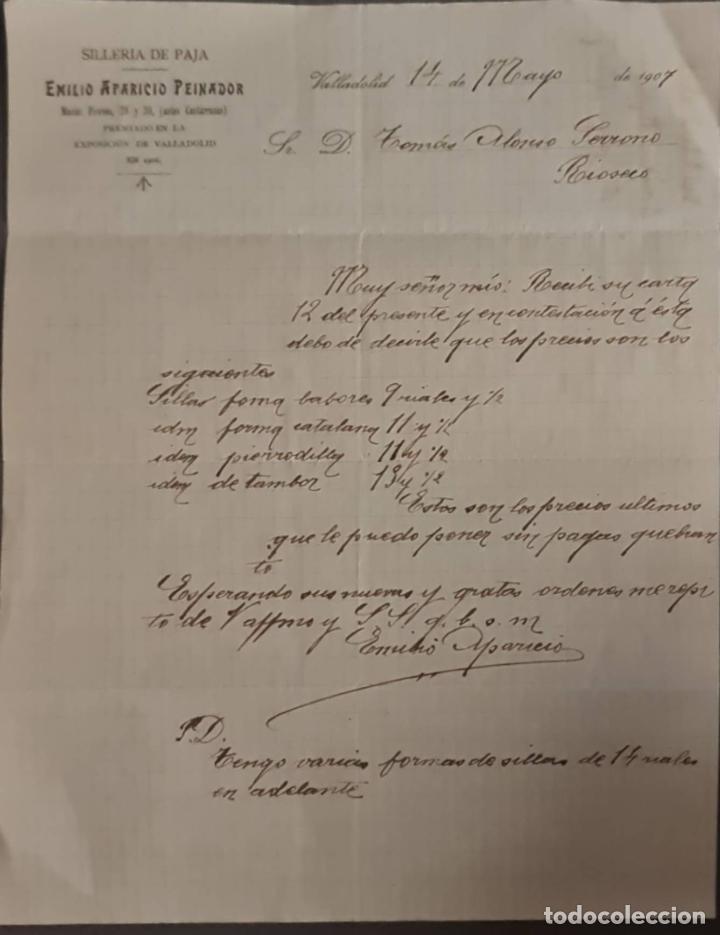 SILLERIA DE PAJA
EMILIO APARICIO PEINADOR
Macías Picavea, 28 y 30, (antes Cantarranas)
PREMIADO EN LA
EXPOSICIÓN DE VALLADOLID
DE 1906.
Valladolid 14 de Mayo de 1907
Sr. D. Tomás Alonso Serrono
Rioseco
Muy señor mío: Recibi su carta
12 del presente y en contestación á ésta
debo de decirle que los precios son los
sigacientes
Sillas foma babores 9 riales y 1/2
idm forma catalana 11 y 1/2
idem pierrodilla 11 y 1/2
idem de tambor 13 y 1/2
Estos son los precios ultimos
que le puedo poner sin pagas quebran
to
Esperando sus nuevas y gratas ordenes me repi
to de V affmo y S. S. q. b. s. m
Emilio Aparicio
P.D.
Tengo varias formas de sillas de 14 riales
en adelante
todocoleccion